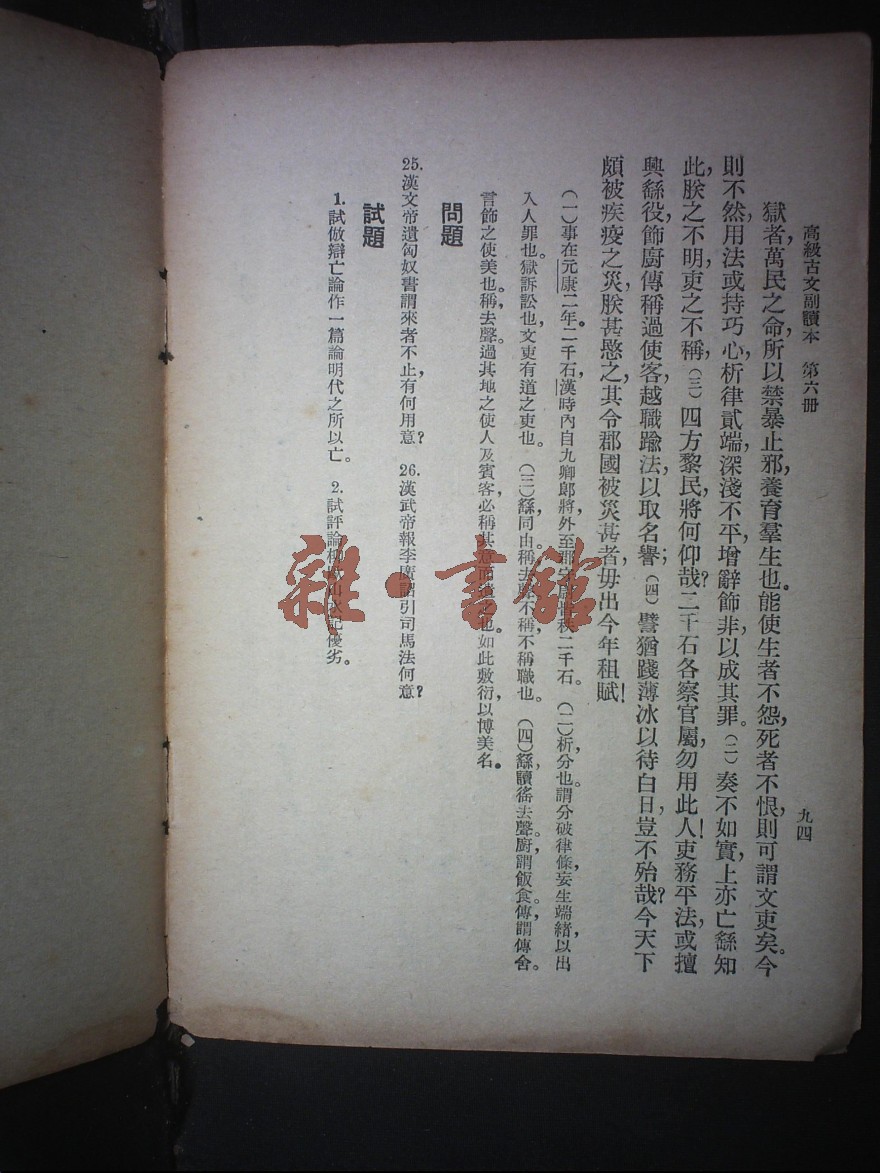 高級古文副讀本　第六册
九四
獄者，萬民之命，所以禁暴止邪，養育羣生也。能使生者不怨，死者不恨，則可謂文吏矣。今
則不然，用法或持巧心，析律貳端，深淺不平，增辭飾非，以成其罪。(二)奏不如實，上亦亡繇知
此，朕之不明，吏之不稱，(三)四方黎民，將何仰哉？二千石各察官屬，勿用此人！吏務平法，或擅
興繇役，飾廚傳稱過使客，越職踰法，以取名譽；(四)譬猶踐薄冰以待白日，豈不殆哉？今天下
頗被疾疫之災，朕甚愍之，其令郡國被災甚者，毋出今年租賦！
(一)事在元康二年。二千石，漢時內自九卿郎將，外至郡守尉皆秩二千石。(二)析分也。謂分破律條，妄生端緒，以出
入人罪也。獄訴訟也，文吏有道之吏也。(三)繇同由，稱去聲，不稱，不稱職也。(四)繇讀徭去聲。廚，謂飯食。傳，謂傳舍。
言飾之使美也。稱，去聲。過其地之使人及賓客，必稱其意而遣之也。如此敷衍，以博美名。
問題
25.漢文帝遺匈奴書謂來者不止，有何用意？　26.漢武帝報李廣詔引司馬法何意？
試題
1.試倣辯亡論作一篇論明代之所以亡。　2.試評論柳 山水記優劣。
雜·書舘